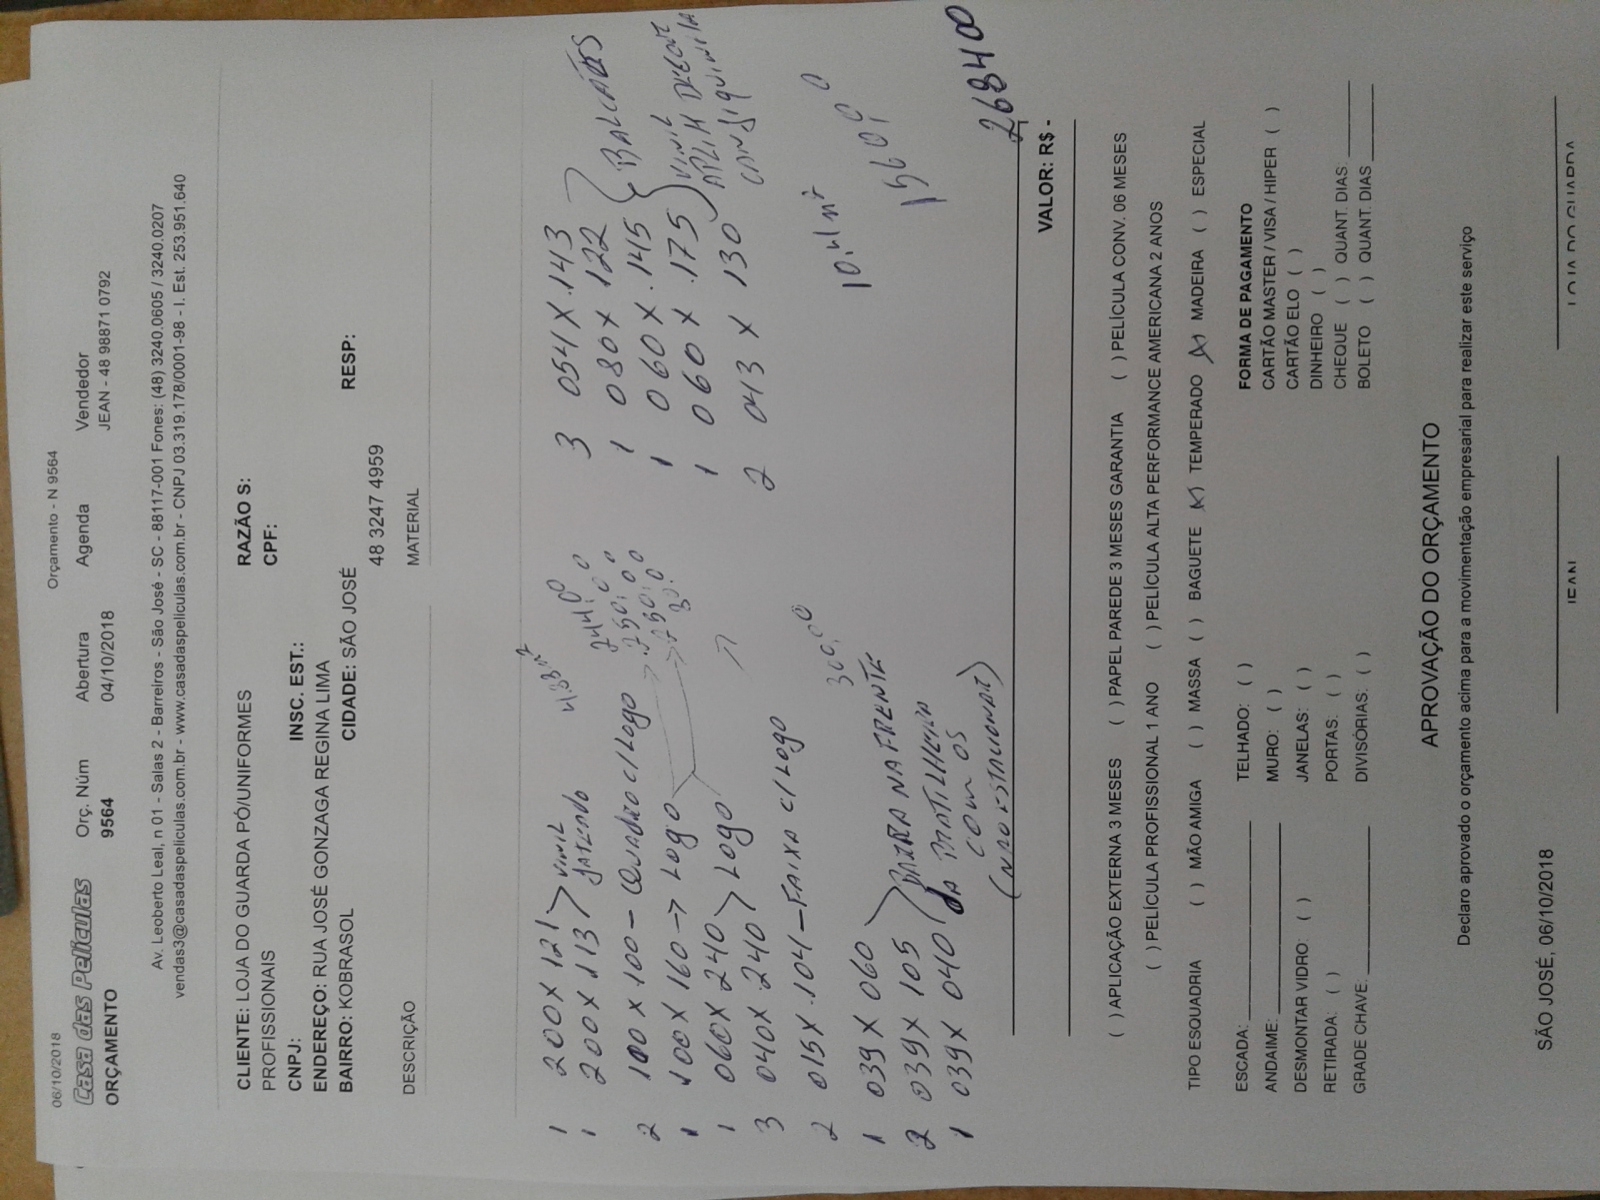 06/10/2018
Orçamento - N 9564
Casa das Películas
ORÇAMENTO
Orç. Núm Abertura Agenda Vendedor
9564 04/10/2018 JEAN - 48 98871 0792
Av. Leoberto Leal, n 01 - Salas 2 - Barreiros - São José - SC - 88117-001 Fones: (48) 3240.0605 / 3240.0207
vendas3@casadaspeliculas.com.br - www.casadaspeliculas.com.br - CNPJ 03.319.178/0001-98 - I. Est. 253.951.640
CLIENTE: LOJA DO GUARDA PÓ/UNIFORMES RAZÃO S:
PROFISSIONAIS CPF:
CNPJ: INSC. EST.:
ENDEREÇO: RUA JOSÉ GONZAGA REGINA LIMA
BAIRRO: KOBRASOL CIDADE: SÃO JOSÉ RESP:
48 3247 4959
DESCRIÇÃO MATERIAL
1 200 X 121
1 200 X 113 VINIL JATEADO 4.33 m²
2 100 X 100 - Quadro c/ Logo
1 100 X 160 -> Logo
1 060 X 240
3 040 X 240 Logo
2 015 X 104 - FAIXA C/ LOGO 300,00
1 039 X 060
2 039 X 105 BAIRA NA FRENTE
1 039 X 040 DA
COM OS
3 054 X 143
1 080 X 122 BALCÕES
1 060 X 145
1 060 X 175 VINIL
2 043 X 130
10.41 m²
1560,00
268400
VALOR: R$ -
( ) APLICAÇÃO EXTERNA 3 MESES ( ) PAPEL PAREDE 3 MESES GARANTIA ( ) PELÍCULA CONV. 06 MESES
( ) PELÍCULA PROFISSIONAL 1 ANO ( ) PELÍCULA ALTA PERFORMANCE AMERICANA 2 ANOS
TIPO ESQUADRIA ( ) MÃO AMIGA ( ) MASSA ( ) BAGUETE (X) TEMPERADO (X) MADEIRA ( ) ESPECIAL
ESCADA: TELHADO: ( ) FORMA DE PAGAMENTO
ANDAIME: MURO: ( ) CARTÃO MASTER / VISA / HIPER ( )
DESMONTAR VIDRO: ( ) JANELAS: ( ) CARTÃO ELO ( )
RETIRADA: ( ) PORTAS: ( ) DINHEIRO ( )
GRADE CHAVE: DIVISÓRIAS: ( ) CHEQUE ( ) QUANT. DIAS:
BOLETO ( ) QUANT. DIAS
APROVAÇÃO DO ORÇAMENTO
Declaro aprovado o orçamento acima para a movimentação empresarial para realizar este serviço
SÃO JOSÉ, 06/10/2018
JEAN LOJA DO GUARDA